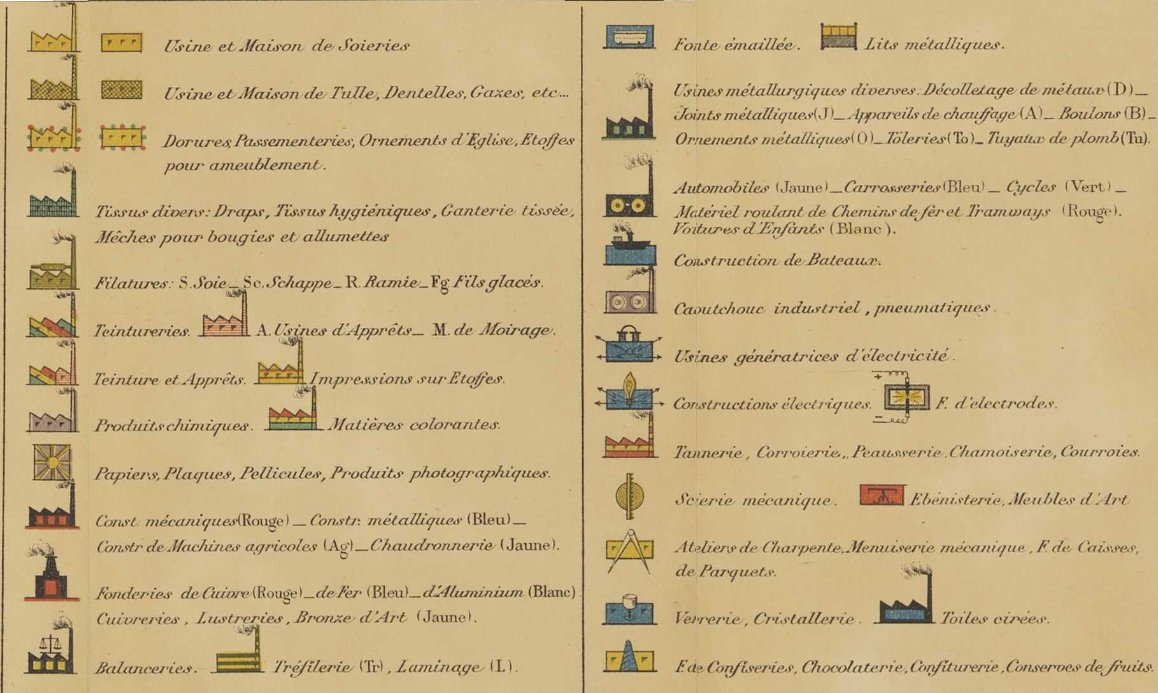 Usine et Maison de Soieries
Usine et Maison de Tulle, Dentelles, Gazes, etc...
Dorures, Passementeries, Ornements d'Eglise, Etoffes
pour ameublement.
Tissus divers: Draps, Tissus hygiéniques, Ganterie tissée,
Mêches pour bougies et allumettes
Filatures: S. Soie_ Sc. Schappe_ R. Ramie_ Fg Fils glacés.
Teintureries. A. Usines d'Apprêts_ M. de Moirage.
Teinture et Apprêts. Impressions sur Etoffes.
Produits chimiques. Matières colorantes.
Papiers, Plaques, Pellicules, Produits photographiques.
Const. mécaniques (Rouge)_ Constr. métalliques (Bleu)_
Constr de Machines agricoles (Ag)_ Chaudronnerie (Jaune).
Fonderies de Cuivre (Rouge)_ de Fer (Bleu)_ d'Aluminium (Blanc)
Cuivreries, Lustreries, Bronze d'Art (Jaune).
Balanceries. Tréfilerie (Tr), Laminage (L).
Fonte émaillée. Lits métalliques.
Usines métallurgiques diverses: Décolletage de métaux (D)_
Joints métalliques (J)_ Appareils de chauffage (A)_ Boulons (B)_
Ornements métalliques (O)_ Tôleries (To)_ Tuyaux de plomb (Tu).
Automobiles (Jaune)_ Carrosseries (Bleu)_ Cycles (Vert)_
Matériel roulant de Chemins de fer et Tramways (Rouge).
Voitures d'Enfants (Blanc).
Construction de Bateaux.
Caoutchouc industriel, pneumatiques.
Usines génératrices d'électricité.
Constructions électriques. F. d'electrodes.
Tannerie, Corroierie, Peausserie, Chamoiserie, Courroies.
Scierie mécanique. Ebénisterie, Meubles d'Art
Ateliers de Charpente, Menuiserie mécanique, F. de Caisses,
de Parquets.
Verrerie, Cristallerie. Toiles cirées.
F. de Confiseries, Chocolaterie, Confiturerie, Conserves de fruits.